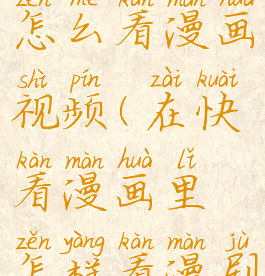 zěn me kàn màn huà
怎么看漫画
shì pín zài kuài
视频(在快
kàn màn huà lǐ
看漫画里
zěn yàng kàn màn jù
怎样看漫剧